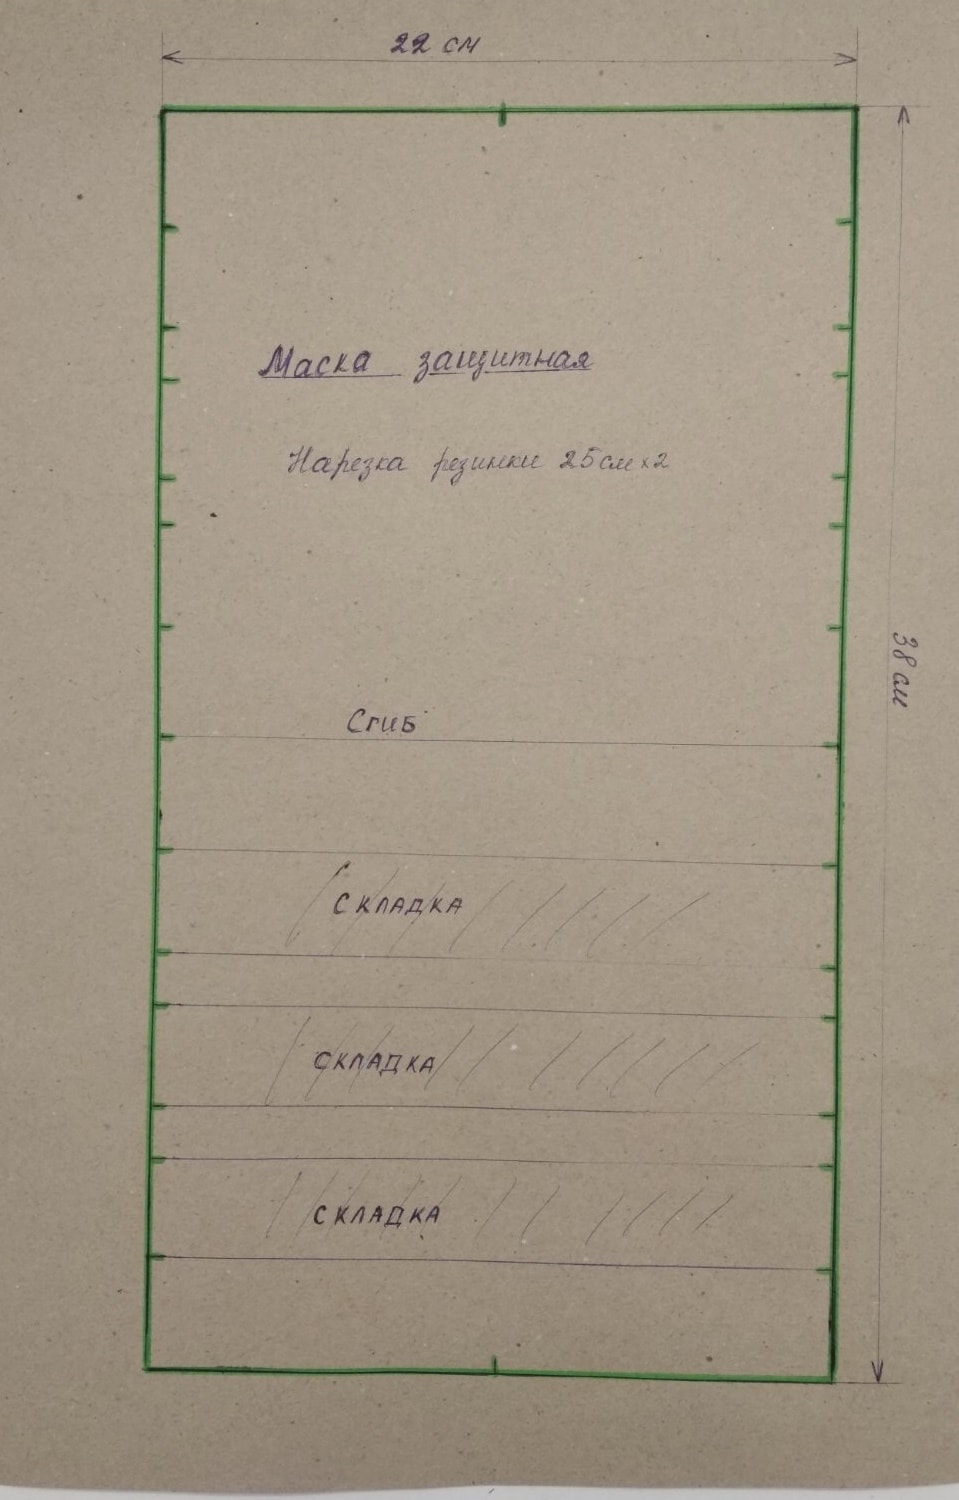 22 см
Маска защитная
Нарезка резинки 25см х2
38 см
Сгиб
складка
складка
складка